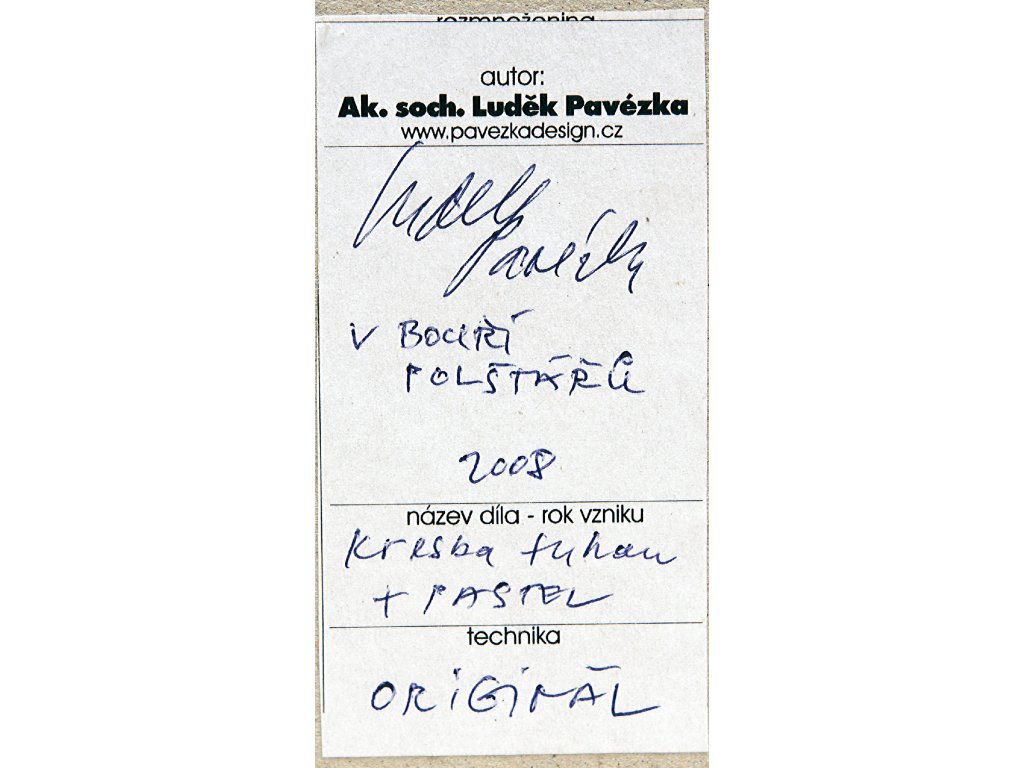 rozmnoženina
autor:
Ak. soch. Luděk Pavézka
www.pavezkadesign.cz
Luděk
Pavézka
V BOUŘÍ
POLŠTÁŘŮ
2008
název díla - rok vzniku
Kresba tuhou
+ PASTEL
technika
ORIGINÁL